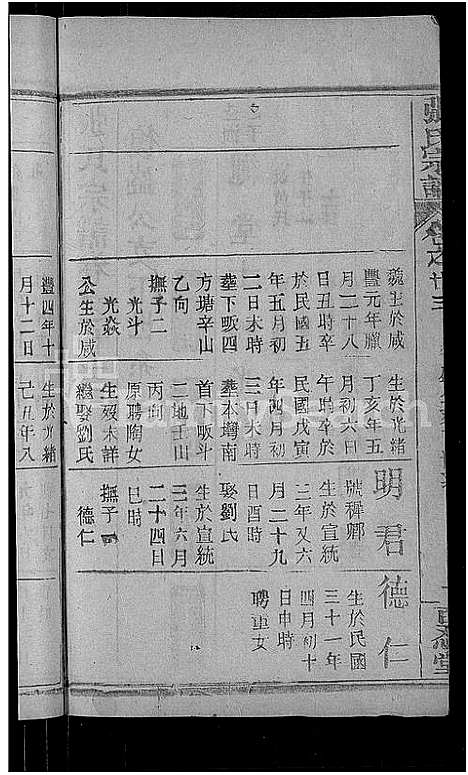 張氏宗譜
卷之廿三
魏生於咸
豐元年臘
月二十八
日丑時卒
於民國五
年五月初
二日未時
葬下畈四
方塘辛山
乙向
撫子二
光斗
光焱
公生於咸
生於光緒
丁亥年五
月初六日
午時卒於
民國戊寅
年四月初
三日未時
葬本灣南
首下畈斗
二地壬山
丙向
原聘陶女
生歿未詳
繼娶劉氏
明君
號稺卿
生於宣統
三年又六
月二十九
日酉時
娶劉氏
生於宣統
三年六月
二十四日
巳時
撫子
德仁
德仁
生於民國
三十一年
四月初十
日申時
聘車女
豐四年十
月十二日
生於光緒
己丑年八